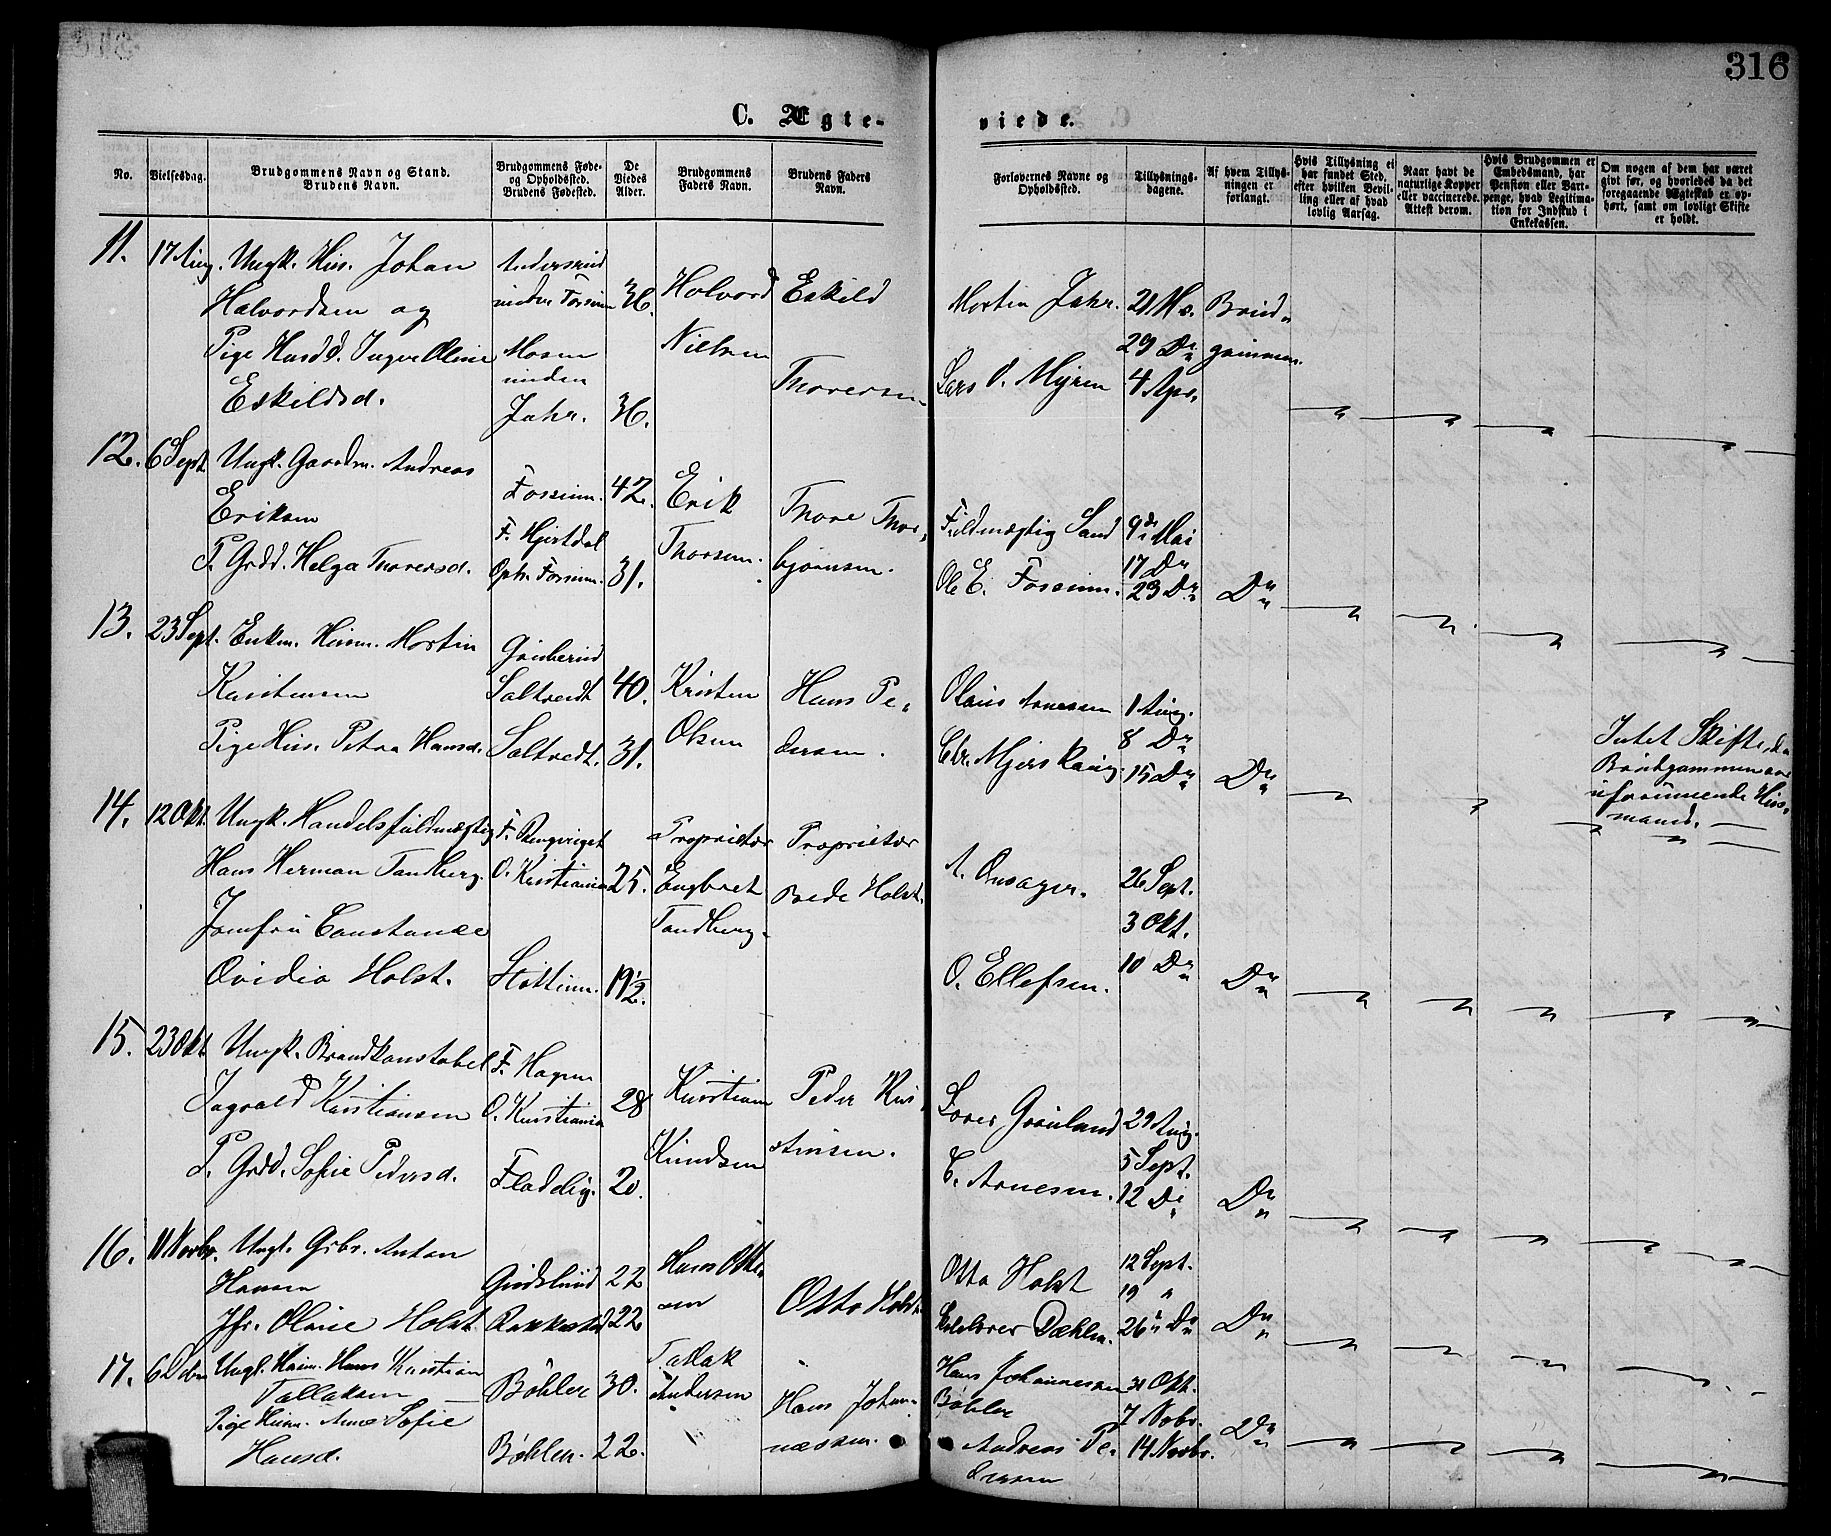 316
C. Ægteviede.
No.
Vielsesdag.
Brudgommens Navn og Stand.
Brudens Navn.
Brudgommens Føde-
og Opholdssted.
Brudens Fødested.
De
Viedes
Alder.
Brudgommens
Faders Navn.
Brudens Faders
Navn.
Forlovernes Navne og
Opholdssted.
Tillysnings-
dagene.
Af hvem Tillys-
ningen er
forlangt.
Hvis Tillysning ei
har fundet Sted,
efter hvilken Bevil-
ling eller af hvad
lovlig Aarsag.
Naar havt de
naturlige Kopper
eller vaccinerede.
Attest derom.
Hvis Brudgommen er
Embedsmand, har
Pension eller Vart-
penge, hvad Legitima-
tion for Indskud i
Enkekassen.
Om nogen af dem har været
givt før, og hvorledes da det
foregaaende Ægteskab er op-
hørt, samt om lovligt Skifte
er holdt.
11. 17 Aug. Ungk. Hus. Johan
Halvordsen og
Pige Husdd. Inger Oline
Eskildsd.
Andersrud
under Fossum
Mosen
under
Jahr.
36.
36.
Halvord
Nielsen
Eskild
Thoresen
Mortin Jahr.
Lars O. Myren
21 Ms.
29 Do
4 Apr.
Brud-
gommen.
12. 6 Sept. Ungk. Gaardm. Andreas
Eriksen
P. Grdd. Helga Thoresd.
Fossum.
F. Hjertdal
Oph. Fossum.
42.
31.
Erik
Thorsen.
Thore Thor-
bjørnsen.
Fuldmægtig Sand
Ole E. Fossum.
9de Mai
17 Do
23 Do
Do
13. 23 Sept. Enkm. Husm. Mortin
Kristensen
Pige Hus. Petra Hansd.
Saltvedt
Saltvedt.
40.
31.
Kristen
Olsen
Hans Pe-
dersen.
Olaus Arnesen
Chr. Mjerskaug.
1 Aug.
8 Do
15 Do
Do
Intet Skifte, da
Brudgommen var
uformuende Hus-
mand.
14. 12 Okt. Ungk. Handelsfuldmægtig
Hans Herman Tandberg.
Jomfru Constance
Ovidia Holst.
F. Ringeriget
O. Kristiania
25.
19½.
Proprietær
Engbret
Tandberg.
Proprietær
Brede Holst.
A. Onsager.
O. Ellefsen.
26 Sept.
3 Okt.
10 Do
Do
15. 23 Okt Ungk. Brandkonstabel
Ingvald Kristiansen
P. Grdd. Sofie Pedersd.
F. Hagen
O. Kristiania
Fladeby.
28
20.
Kristian
Knudsen
Peder Kri-
stinsen.
Lorer Grønland
C. Arnesen.
29 Aug.
5 Sept.
12 Do
Do
16. 11 Novbr. Ungk. Grbr. Anton
Hansen
Jfr. Oline Holst
Gudslund
Rakkestad
22
22
Hans Otte-
sen
Otto Holst
Otto Holst
Dæhlen.
12 Sept.
19 "
26 Do
Do
17. 6 Dcbr Ungk. Husm. Hans Kristian
Tallaksen
Pige Husm. Anne Sofie
Hansd.
Bøhler
Bøhler.
30.
22.
Tallak
Andersen
Hans Johan-
nessen.
Hans Johannessen
Bøhler
Andreas Pe-
dersen
31 Okt.
7 Nobr.
14 Novbr.
Do